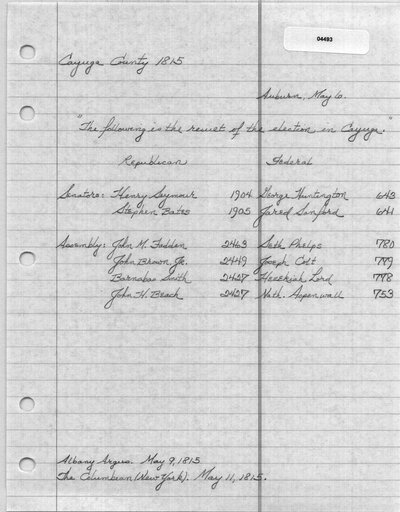 04493
Cayuga County 1815
Auburn, May 6.
"The following is the result of the election in Cayuga."
Republican Federal
Senators: Henry Seymour 1904 George Huntington 643
Stephen Bates 1905 Jared Sanford 641
Assembly: John M. Fadden 2463 Seth Phelps 780
John Brown Jr. 2449 Joseph Colt 779
Barnabas Smith 2427 Hezekiah Lord 778
John H. Beach 2427 Nath. Aspenwall 753
Albany Argus. May 9, 1815
The Columbian (New York). May 11, 1815.